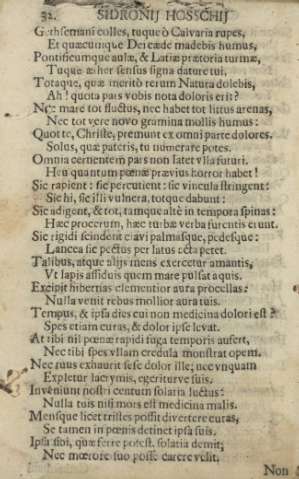 32. SIDRONII HOSSCHII
Gethsemani colles, tuque ò Calvaria rupes,
Et quæcunque Dei cæde madebis humus,
Pontificumque aulæ, & Latiæ prætoria turmæ,
Tuque æther sensus signa dature tui,
Totaque, quæ meritò rerum Natura dolebis,
Ah! quota pars vobis nota doloris erit?
Nec mare tot fluctus, nec habet tot littus arenas,
Nec tot vere novo gramina mollis humus:
Quot te, Christe, premunt ex omni parte dolores.
Solus, quæ pateris, tu numerare potes.
Omnia cernentem pars non latet ulla futuri.
Heu quantum pœnæ prævius horror habet!
Sic rapient: sic percutient: sic vincula stringent:
Sic hi, sic illi vulnera, totque dabunt:
Sic adigent, & tot, tamque altè in tempora spinas:
Hæc procerum, hæc turbæ verba furentis erunt.
Sic rigidi scindent clavi palmasque, pedesque:
Lancea sic pectus per latus icta petet.
Talibus, atque alijs mens exercetur amantis,
Vt lapis assiduis quem mare pulsat aquis.
Excipit hibernas clementior aura procellas:
Nulla venit rebus mollior aura tuis.
Tempus, & ipsa dies cui non medicina dolori est?
Spes etiam curas, & dolor ipse levat.
At tibi nil pœnæ rapidi fuga temporis aufert,
Nec tibi spes ullam credula monstrat opem.
Nec tuus exhaurit sese dolor ille; nec unquam
Expletur lacrymis, egeriturve suis.
Inveniunt nostri centum solatia luctus:
Nulla tuis nisi mors est medicina malis.
Mensque licet trilles possit divertere curas,
Se tamen in pœnis detinet ipsa suis.
Ipsa sibi, quæ ferre potest, solatia demit;
Nec mœrore suo posse carere velit,
Non